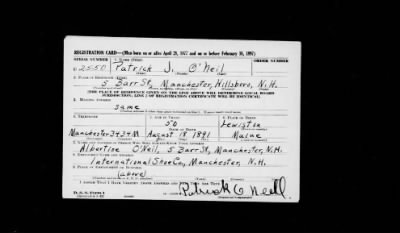 REGISTRATION CARD—(Men born on or after April 28, 1877 and on or before February 16, 1897)
SERIAL NUMBER 1. NAME (Print) ORDER NUMBER
U 2550 Patrick J. O'Neil
(First) (Middle) (Last)
2. PLACE OF RESIDENCE (Print)
5 Barr St., Manchester, Hillsboro, N.H.
[THE PLACE OF RESIDENCE GIVEN ON THE LINE ABOVE WILL DETERMINE LOCAL BOARD
JURISDICTION; LINE 2 OF REGISTRATION CERTIFICATE WILL BE IDENTICAL]
3. MAILING ADDRESS
same
4. TELEPHONE 5. AGE IN YEARS 6. PLACE OF BIRTH
50 Lewiston
DATE OF BIRTH
Manchester 3434M August 18 1891 Maine
7. NAME AND ADDRESS OF PERSON WHO WILL ALWAYS KNOW YOUR ADDRESS
Albertine O'Neil, 5 Barr St., Manchester, N.H.
8. EMPLOYER'S NAME AND ADDRESS
International Shoe Co., Manchester, N.H.
9. PLACE OF EMPLOYMENT OR BUSINESS
(above)
I AFFIRM THAT I HAVE VERIFIED ABOVE ANSWERS AND THAT THEY ARE TRUE.
Patrick O'Neill.